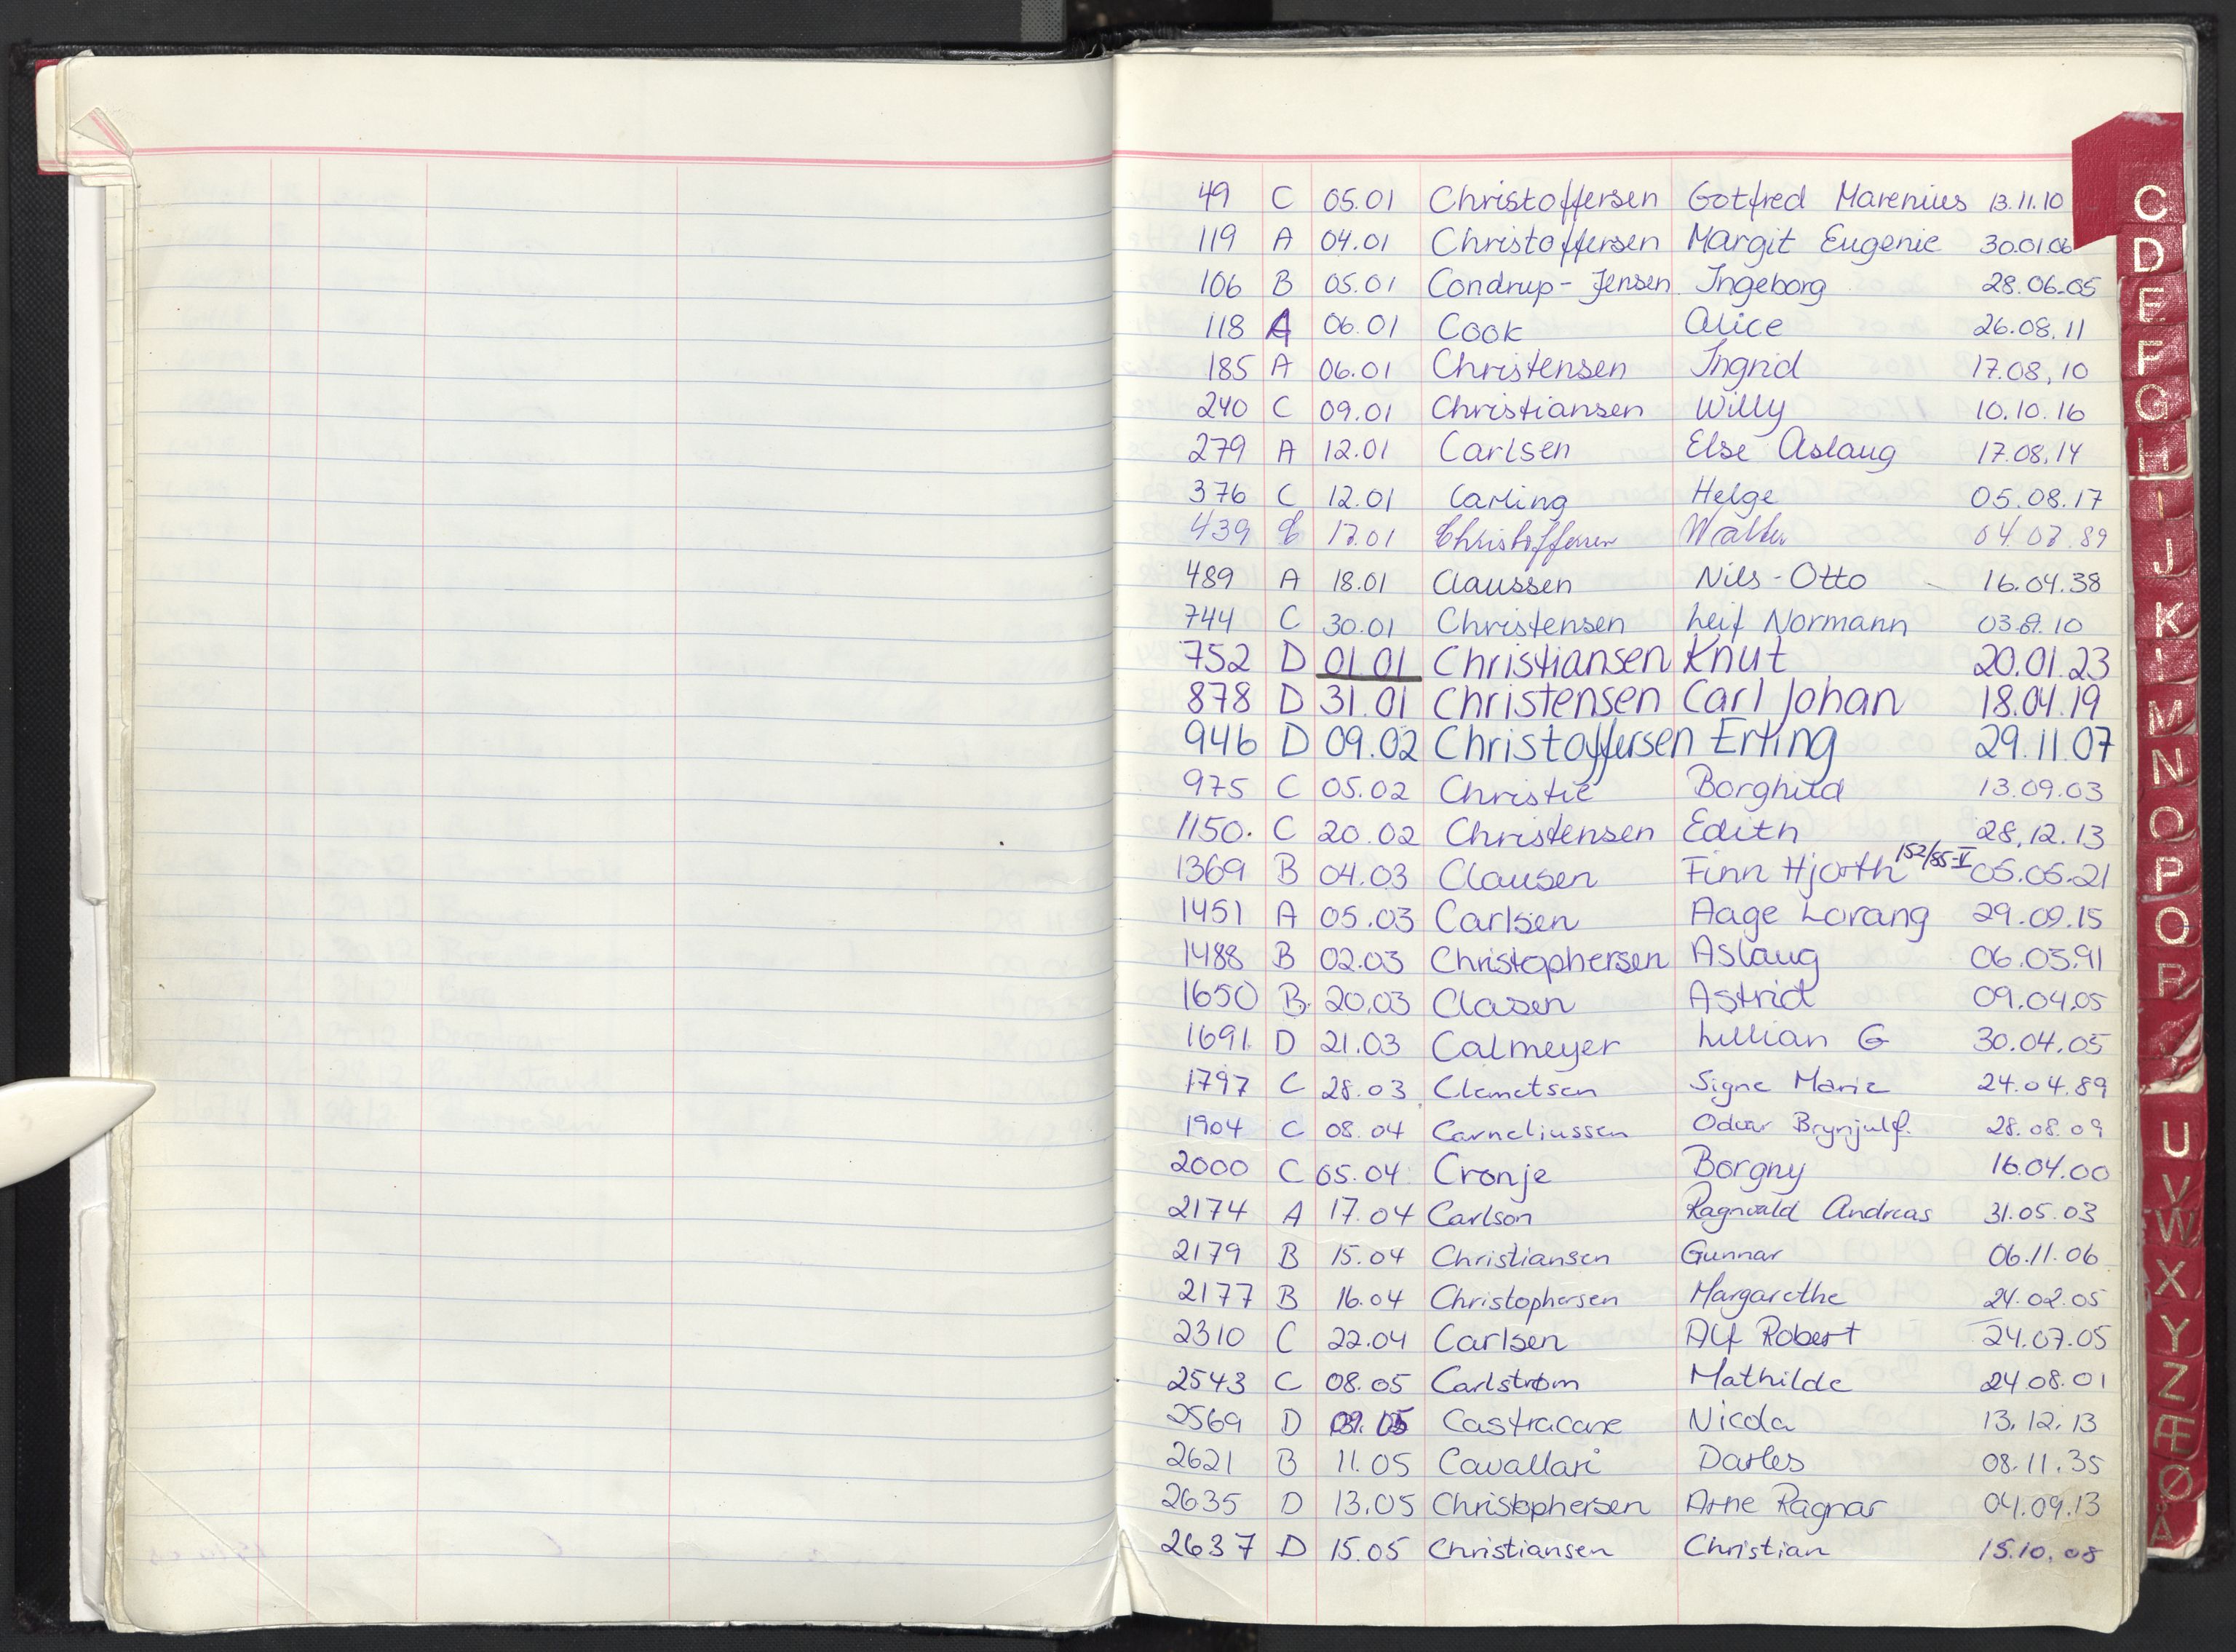 49 C 05.01 Christoffersen Gotfred Marenius 13.11.10
119 A 04.01 Christoffersen Margit Eugenie 30.01.06
106 B 05.01 Condrup-Jensen Ingeborg 28.06.05
118 A 06.01 Cook Alice 26.08.11
185 A 06.01 Christensen Ingrid 17.08.10
240 C 09.01 Christiansen Willy 10.10.16
279 A 12.01 Carlsen Else Aslaug 17.08.14
376 C 12.01 Carling Helge 05.08.17
439 C 17.01 Christoffersen Walter 04.07.89
489 A 18.01 Claussen Nils-Otto 16.04.38
744 C 30.01 Christensen Leif Normann
752 D 01.01 Christiansen Knut 20.01.23
878 D 31.01 Christensen Carl Johan 18.04.19
946 D 09.02 Christoffersen Erling 29.11.07
975 C 05.02 Christie Borghild 13.09.03
1150. C 20.02 Christensen Edith 28.12.13
1369 B 04.03 Clausen Finn Hjorth 152/85-V 05.05.21
1451 A 05.03 Carlsen Aage Lorang 29.09.15
1488 B 02.03 Christophersen Aslaug 06.03.91
1650 B. 20.03 Clasen Astrid 09.04.05
1691 D 21.03 Calmeyer Lillian G 30.04.05
1797 C 28.03 Clemetsen Signe Marie 24.04.89
1904 C 08.04 Corneliussen Odvar Brynjulf. 28.08.09
2000 C 05.04 Cronje Borgny 16.04.00
2174 A 17.04 Carlson Ragnvald Andreas 31.05.03
2179 B 15.04 Christiansen Gunnar 06.11.06
2177 B 16.04 Christophersen Margarethe 24.02.05
2310 C 22.04 Carlsen Alf Robert 24.07.05
2543 C 08.05 Carlstrøm Mathilde 24.08.01
2569 D Castracane Nicola 13.12.13
2621 B 11.05 Cavallari Darles 08.11.35
2635 D 13.05 Christophersen Arne Ragnar 04.09.13
2637 D 15.05 Christiansen Christian 15.10.08
C
D
E
F
G
H
I
J
K
L
M
N
O
P
Q
R
U
V
W
X
Y
Z
Æ
Ø
Å